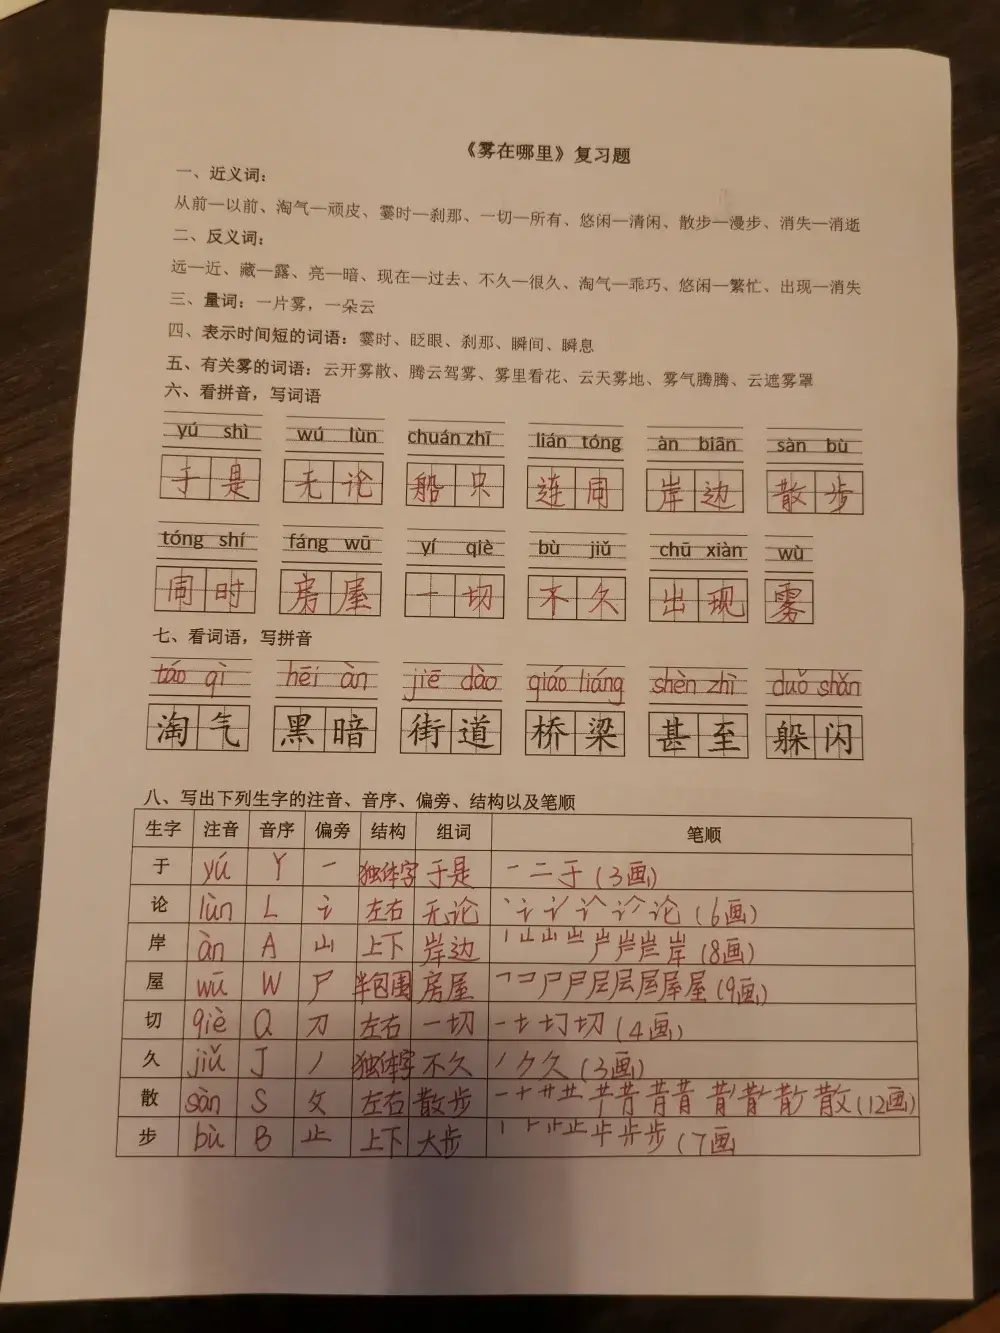 《雾在哪里》复习题
一、近义词：
从前—以前、淘气—顽皮、霎时—刹那、一切—所有、悠闲—清闲、散步—漫步、消失—消逝
二、反义词：
远—近、藏—露、亮—暗、现在—过去、不久—很久、淘气—乖巧、悠闲—繁忙、出现—消失
三、量词：一片雾，一朵云
四、表示时间短的词语：霎时、眨眼、刹那、瞬间、瞬息
五、有关雾的词语：云开雾散、腾云驾雾、雾里看花、云天雾地、雾气腾腾、云遮雾罩
六、看拼音，写词语
yú shì wú lùn chuán zhī lián tóng àn biān sàn bù
于是 无论 船只 连同 岸边 散步
tóng shí fáng wū yí qiè bù jiǔ chū xiàn wù
同时 房屋 一切 不久 出现 雾
七、看词语，写拼音
táo qì hēi àn jiē dào qiáo liáng shèn zhì duǒ shǎn
淘气 黑暗 街道 桥梁 甚至 躲闪
八、写出下列生字的注音、音序、偏旁、结构以及笔顺
生字 注音 音序 偏旁 结构 组词 笔顺
于 yú Y 一 独体字 于是 一 二 于（3画）
论 lùn L 讠 左右 无论 （6画）
岸 àn A 山 上下 岸边 （8画）
屋 wū W 尸 半包围 房屋 （9画）
切 qiè Q 刀 左右 一切 （4画）
久 jiǔ J 丿 独体字 不久 丿 ク 久（3画）
散 sàn S 攵 左右 散步 （12画）
步 bù B 止 上下 大步 （7画